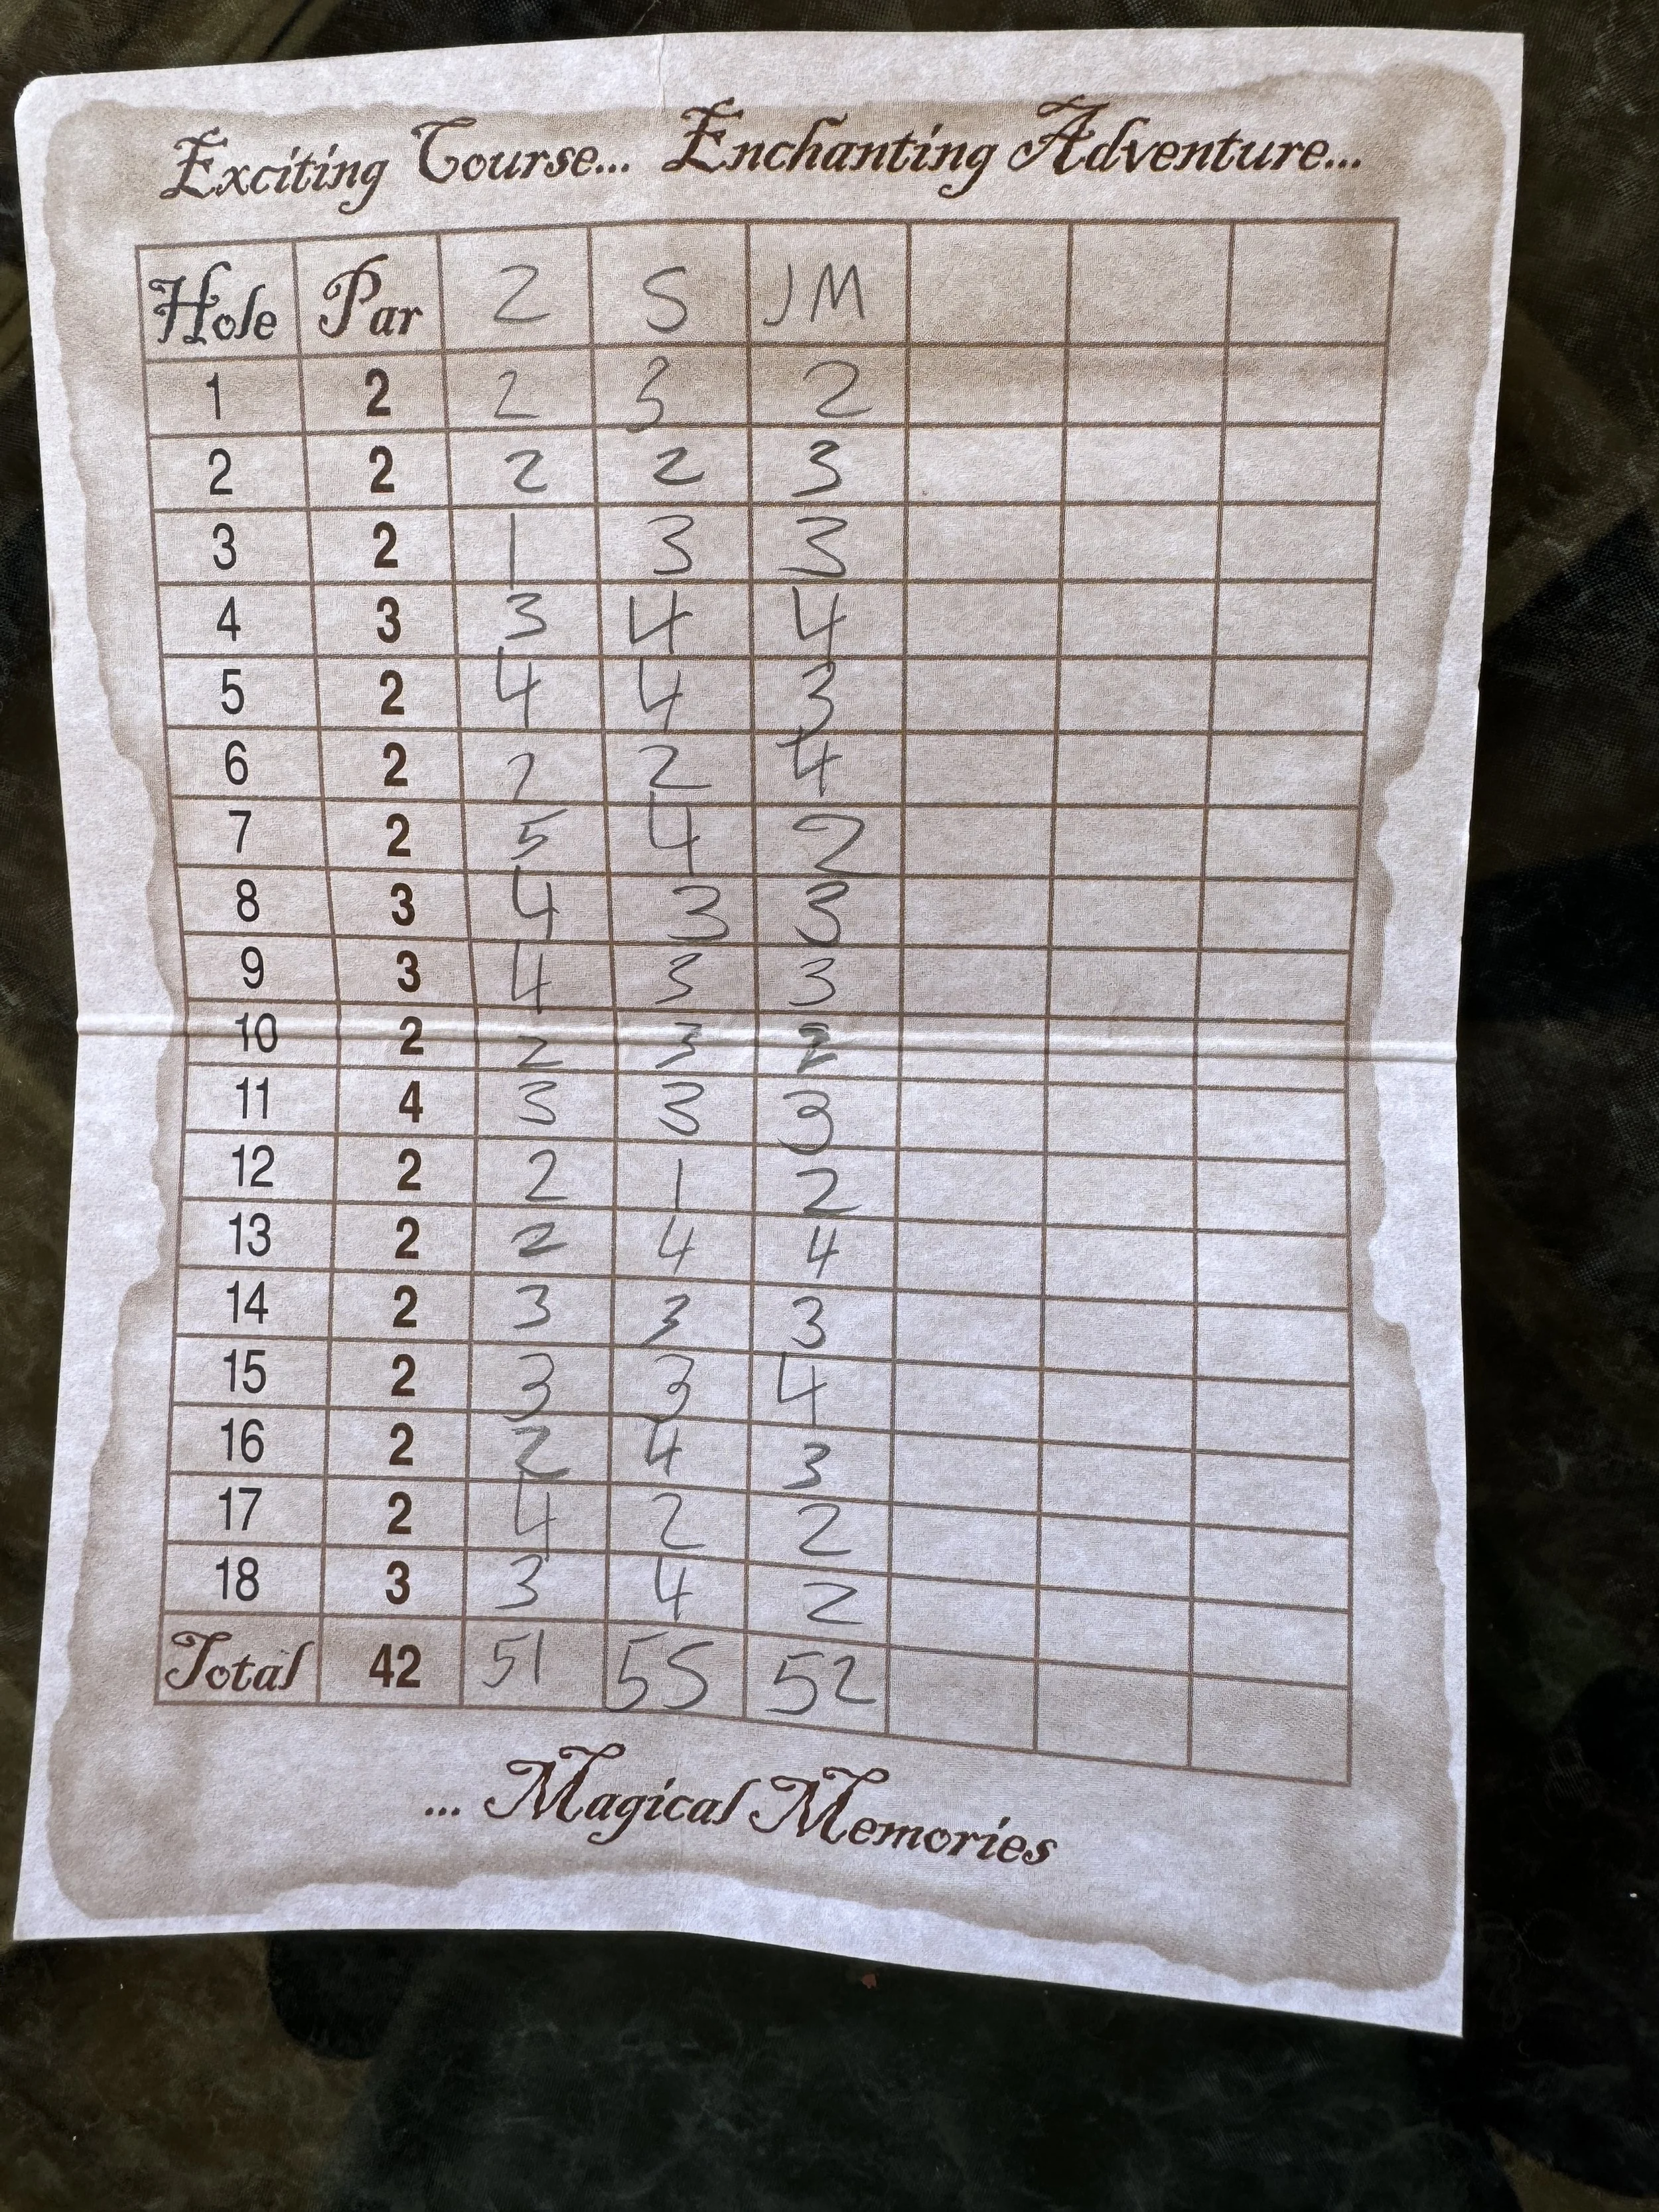 Exciting Course... Enchanting Adventure...
Hole Par Z S JM
1 2 2 3 2
2 2 2 2 3
3 2 1 3 3
4 3 3 4 4
5 2 4 4 3
6 2 2 2 4
7 2 5 4 2
8 3 4 3 3
9 3 4 3 3
10 2 2 3 2
11 4 3 3 3
12 2 2 1 2
13 2 2 4 4
14 2 3 3 3
15 2 3 3 4
16 2 2 4 3
17 2 4 2 2
18 3 3 4 2
Total 42 51 55 52
... Magical Memories